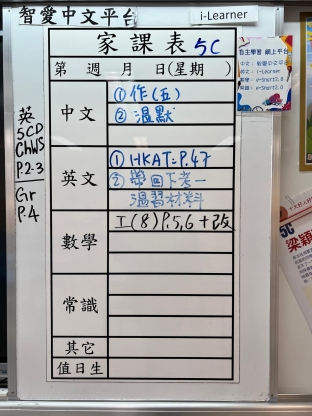 智愛中文平台
i-Learner
家課表 5C
第 週 月 日(星期 )
中文
①作(五)
②溫默
英文
①HKAT=P.47
②帶回下考一
溫習材料
數學
工(8)P.5,6+改
常識
其它
值日生
英
5CD
ChWS
P.2-3
Gr
P.4
自主學習 網上平台
中文：智愛中文平台
英文：i-Learner
5C
梁穎